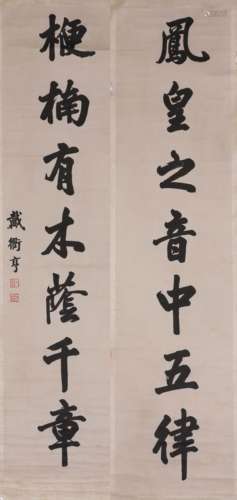 鳳皇之音中五律
楩楠有木蔭千章
戴衢亨